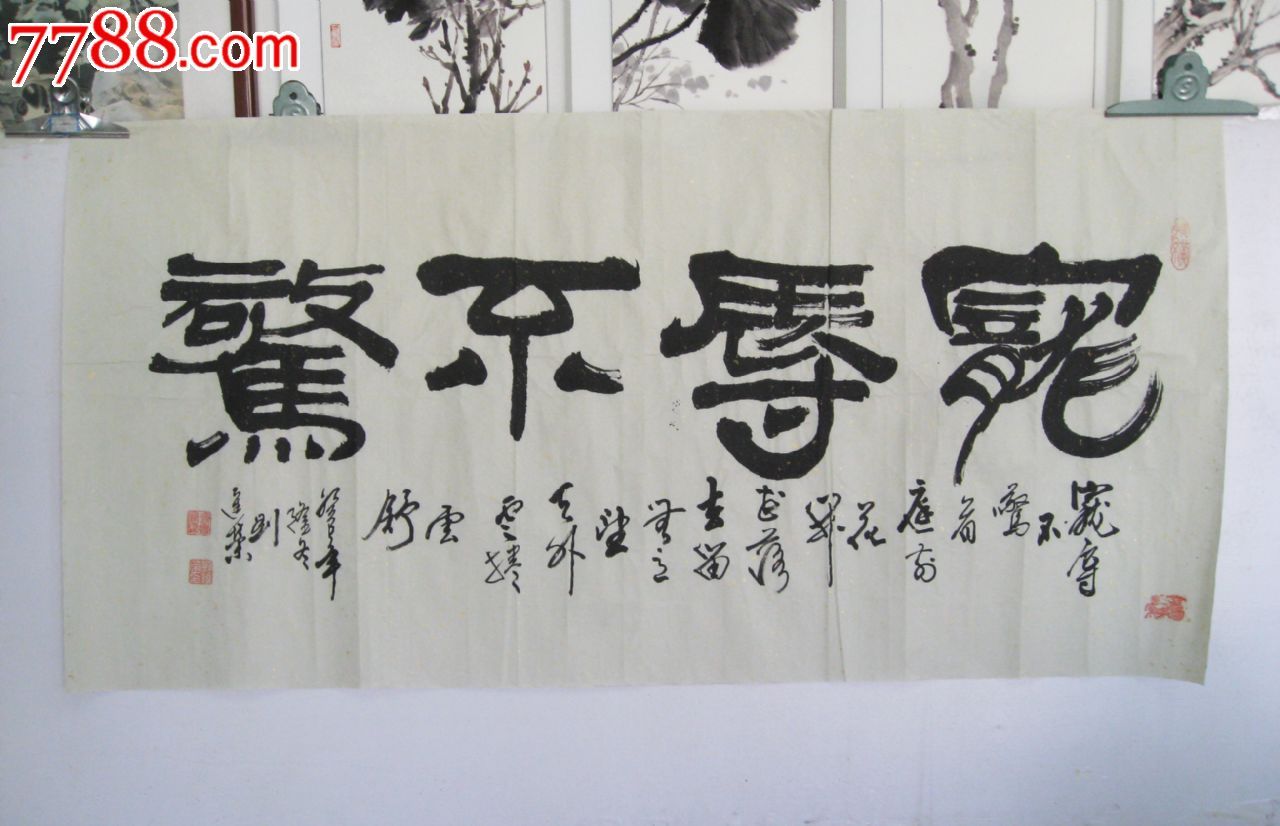 7788.com
寵辱不驚
寵辱
不
驚
看
庭前
花
開
花落
去留
無意
望
天外
雲捲
雲
舒
癸巳年
隆冬
刘
進榮